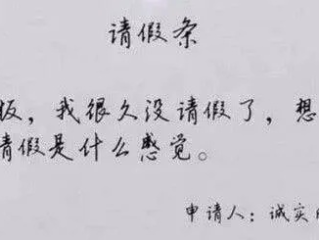 请假条
板，我很久没请假了，想
请假是什么感觉。
申请人：诚实